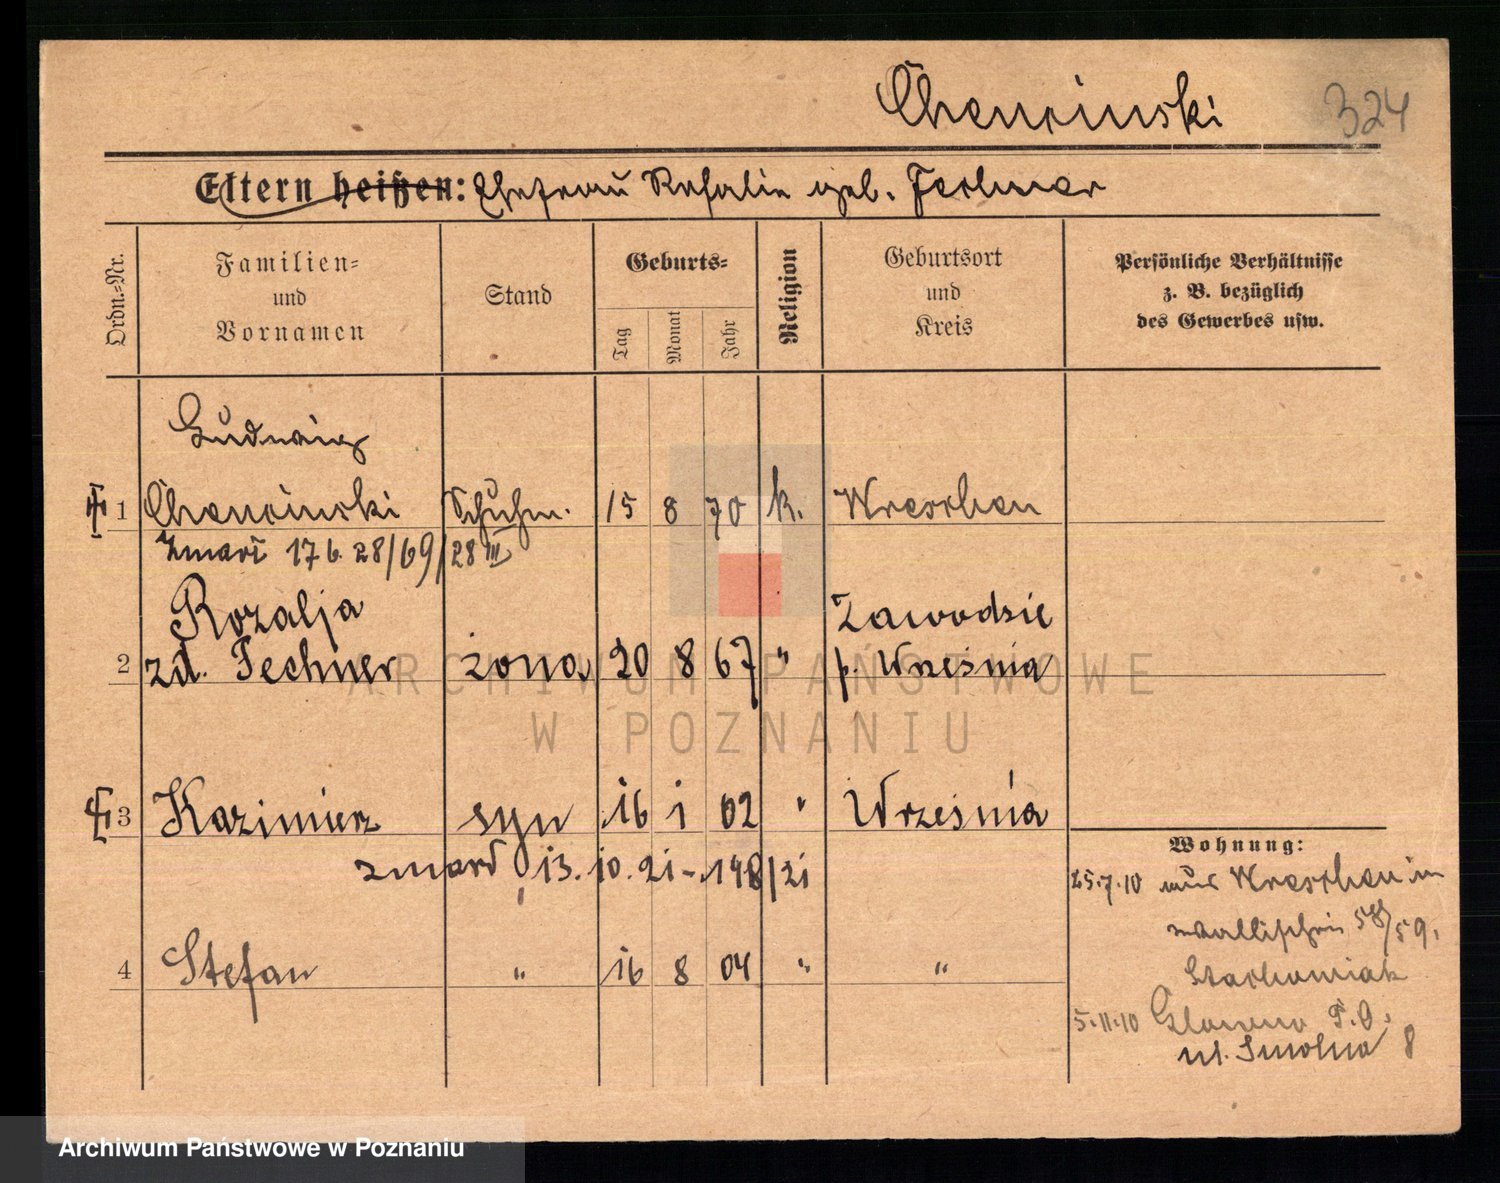 Chencinski
324
Eltern heißen: Ehefrau Rosalie geb. Fechner
Ordn.-Nr.
Familien-
und
Vornamen
Stand
Geburts-
Tag
Monat
Jahr
Religion
Geburtsort
und
Kreis
Persönliche Verhältnisse
z. B. bezüglich
des Gewerbes usw.
Ludwig
1 Chencinski Schuhm. 15 8 70 k. Wreschen
Zmarł 17 6. 28/69/28 III
Rozalja Zawodzie
2 zd. Fechner żona 20 8 67 " p. Września
3 Kazimierz syn 16 1 02 " Września
zmarł 13.10.21 - 148/21
4 Stefan " 16 8 04 " "
Wohnung:
25.7.10 aus Wreschen in
Wallischei 58/59.
Stachowiak
5.11.10 Glowno T.O.
ul. Smolna 8
ARCHIWUM PAŃSTWOWE
W POZNANIU
Archiwum Państwowe w Poznaniu